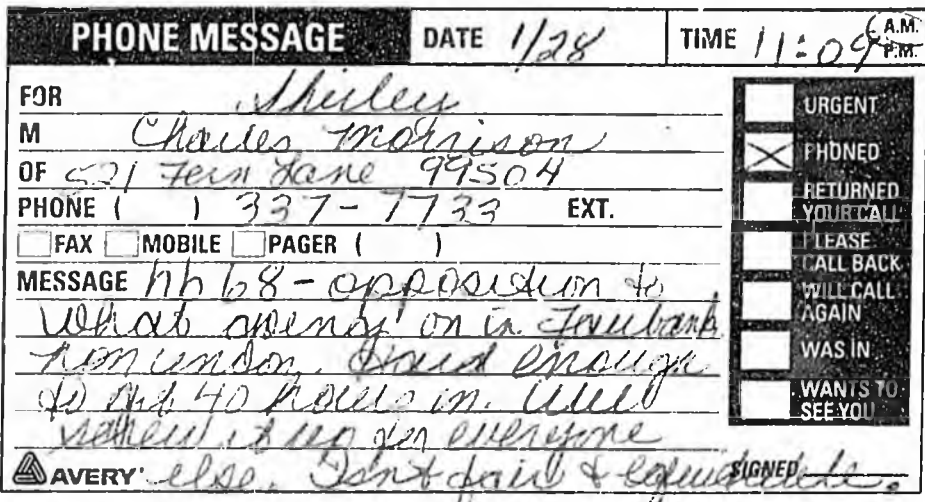 PHONE MESSAGE DATE 1/28 TIME 11:09 A.M. P.M.
FOR Shirley
M Charles Morrison
OF 521 Fern Lane 99504
PHONE ( ) 337-7733 EXT.
FAX MOBILE PAGER ( )
MESSAGE hb 68 - opposition to
What on in Fairbank
non union. Hard enough
to get 40 hours in. Will
screw it up for everyone
else. Isn't fair & equitable.
AVERY SIGNED
URGENT
PHONED
RETURNED
YOUR CALL
PLEASE
CALL BACK
WILL CALL
AGAIN
WAS IN
WANTS TO
SEE YOU